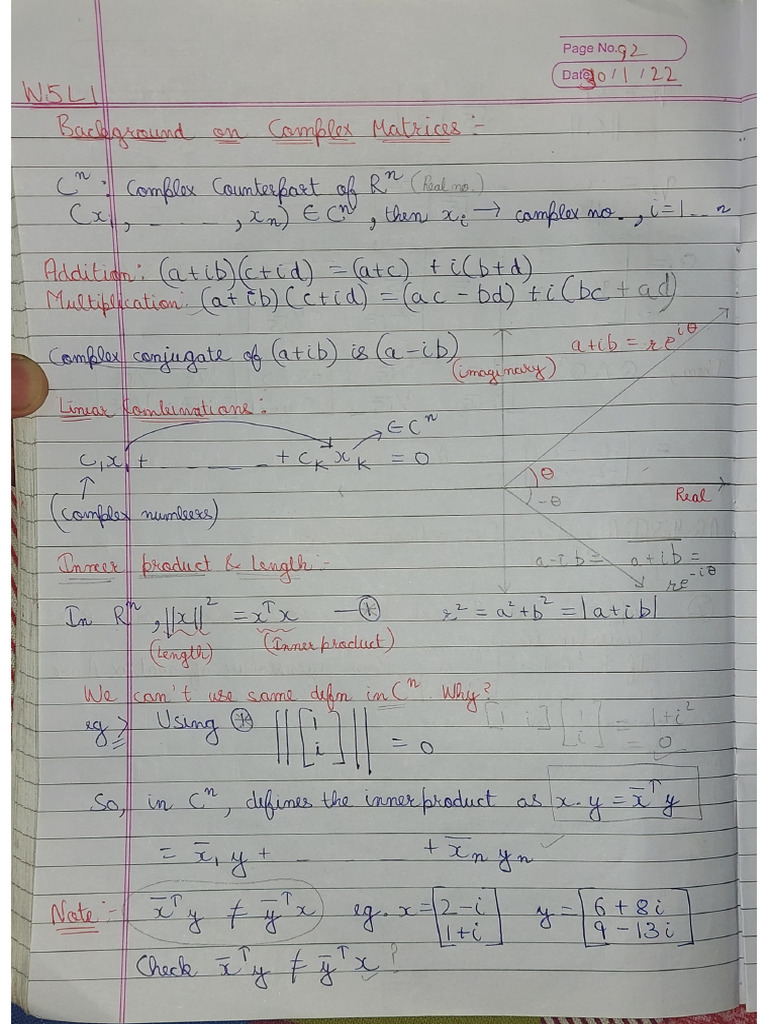 Page No. 92
Date 30/1/22
W5L1
Background on Complex Matrices :-
Cⁿ : Complex Counterpart of Rⁿ (Real no.)
(x₁, _ _ _ , xₙ) ∈ Cⁿ, then xᵢ → complex no., i=1 _ _ n
Addition: (a+ib)(c+id) = (a+c) + i(b+d)
Multiplication: (a+ib)(c+id) = (ac-bd) + i(bc+ad)
Complex conjugate of (a+ib) is (a-ib)
a+ib = re^{iθ}
(imaginary)
Linear Combinations:
∈ Cⁿ
c₁x₁ + _ _ _ _ + c_K x_K = 0
θ
Real
-θ
(complex numbers)
Inner product & Length :-
a-ib = \overline{a+ib} =
re^{-iθ}
In Rⁿ, ||x||² = xᵀx — ⊛
r² = a²+b² = |a+ib|
(Length) (Inner product)
We can't use same defn in Cⁿ. Why?
eg> Using ⊛ ||[1 i]|| = 0
[1 i][1 i] = 1+i²
= 0
So, in Cⁿ, defines the inner product as x.y = x̄ᵀy
= x̄₁y + _ _ _ + x̄ₙyₙ
Note :- x̄ᵀy ≠ ȳᵀx eg. x = [2-i 1+i] y = [6+8i 9-13i]
Check x̄ᵀy ≠ ȳᵀx ?